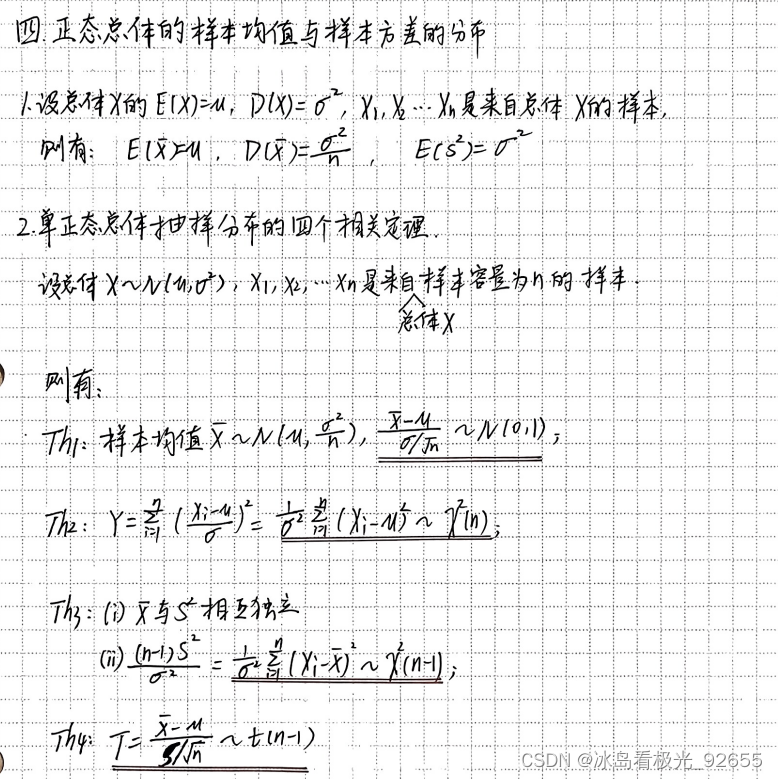 四.正态总体的样本均值与样本方差的分布
1.设总体X的E(X)=μ, D(X)=σ², X₁,X₂…Xₙ是来自总体X的样本,
则有: E(X̄)=μ, D(X̄)=σ²/n, E(S²)=σ²
2.单正态总体抽样分布的四个相关定理.
设总体X~N(μ,σ²), X₁,X₂,…Xₙ是来自样本容量为n的样本.
总体X
则有:
Th1: 样本均值X̄~N(μ,σ²/n), (X̄-μ)/(σ/√n) ~N(0,1);
Th2: Y=∑ⁿᵢ₌₁((Xᵢ-μ)/σ)²=1/σ² ∑ⁿᵢ₌₁(Xᵢ-μ)²~χ²(n);
Th3: (i) X̄与S²相互独立
(ii) (n-1)S²/σ² = 1/σ² ∑ⁿᵢ₌₁(Xᵢ-X̄)²~χ²(n-1);
Th4: T=(X̄-μ)/(S/√n) ~t(n-1)
CSDN @冰岛看极光_92655